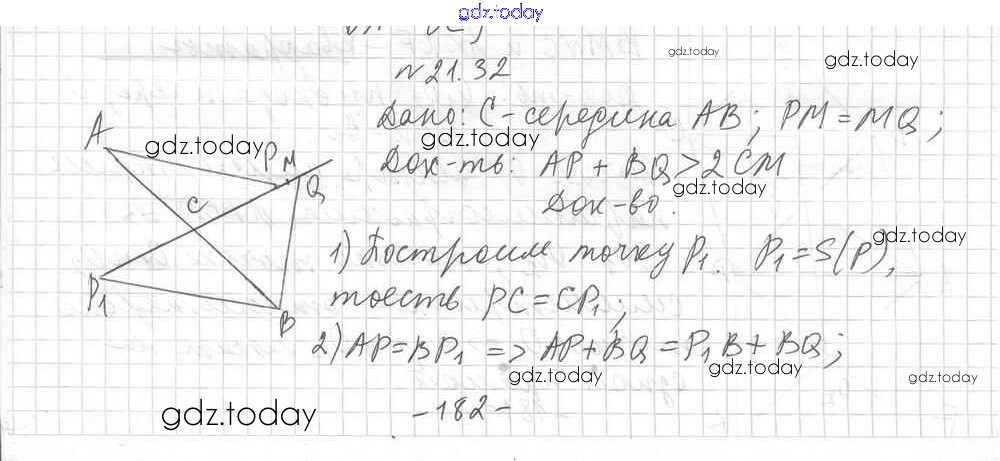 gdz.today
gdz.today
gdz.today
№21.32
Дано: C-середина AB; PM=MQ;
gdz.today
gdz.today
Док-ть: AP + BQ > 2CM
gdz.today
Док-во:
A
P M
Q
C
P1
B
gdz.today
1) Построим точку P1. P1=S(P),
тоесть PC=CP1;
2) AP=BP1 => AP+BQ=P1B+BQ;
gdz.today
gdz.today
gdz.today
gdz.today
-182-